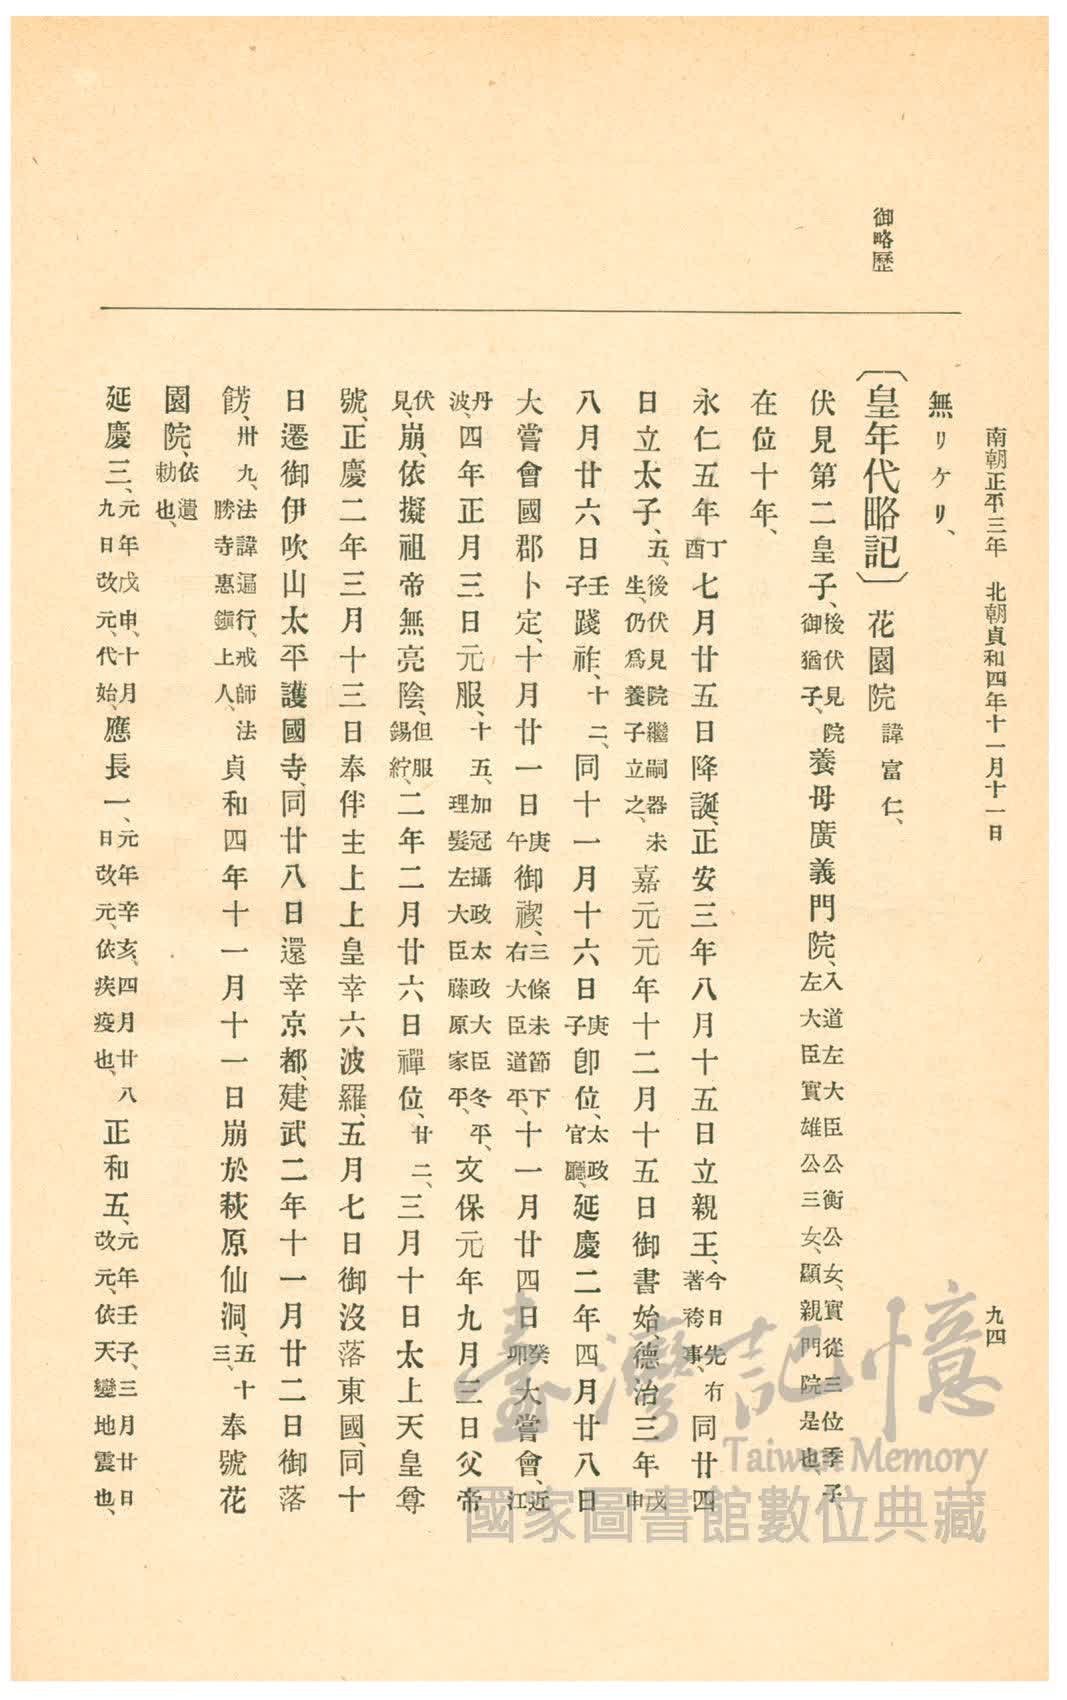 南朝正平三年 北朝貞和四年十一月十一日
九四
御略歷
無リケリ、
〔皇年代略記〕 花園院 諱富仁、
伏見第二皇子、後伏見院御猶子、養母廣義門院、入道左大臣公衡公女、實從三位季子左大臣實雄公三女、顯親門院是也、
在位十年、
永仁五年丁酉七月廿五日降誕、正安三年八月十五日立親王、今日先有著袴事、同廿四
日立太子、五、後伏見院繼嗣器未生、仍爲養子立之、嘉元元年十二月十五日御書始、德治三年戊申
八月廿六日壬子踐祚、十二、同十一月十六日庚子卽位、太政官廳、延慶二年四月廿八日
大嘗會國郡卜定、十月廿一日庚午御禊、三條末節下右大臣道平、十一月廿四日癸卯大嘗會、近江
丹波、四年正月三日元服、十五、加冠攝政太政大臣冬平、理髮左大臣藤原家平、文保元年九月三日父帝
伏見、崩、依擬祖帝無亮陰、但服錫紵、二年二月廿六日禪位、廿二、三月十日太上天皇尊
號、正慶二年三月十三日奉伴主上上皇幸六波羅、五月七日御沒落東國、同十
日遷御伊吹山太平護國寺、同廿八日還幸京都、建武二年十一月廿二日御落
餝、卅九、法諱遍行、戒師法勝寺惠鎭上人、貞和四年十一月十一日崩於萩原仙洞、五十三、奉號花
園院、依遺勅也、
延慶三、元年戊申、十月九日改元、代始、應長一、元年辛亥、四月廿八日改元、依疾疫也、正和五、元年壬子、三月廿日改元、依天變地震也、
臺灣記憶
Taiwan Memory
國家圖書館數位典藏